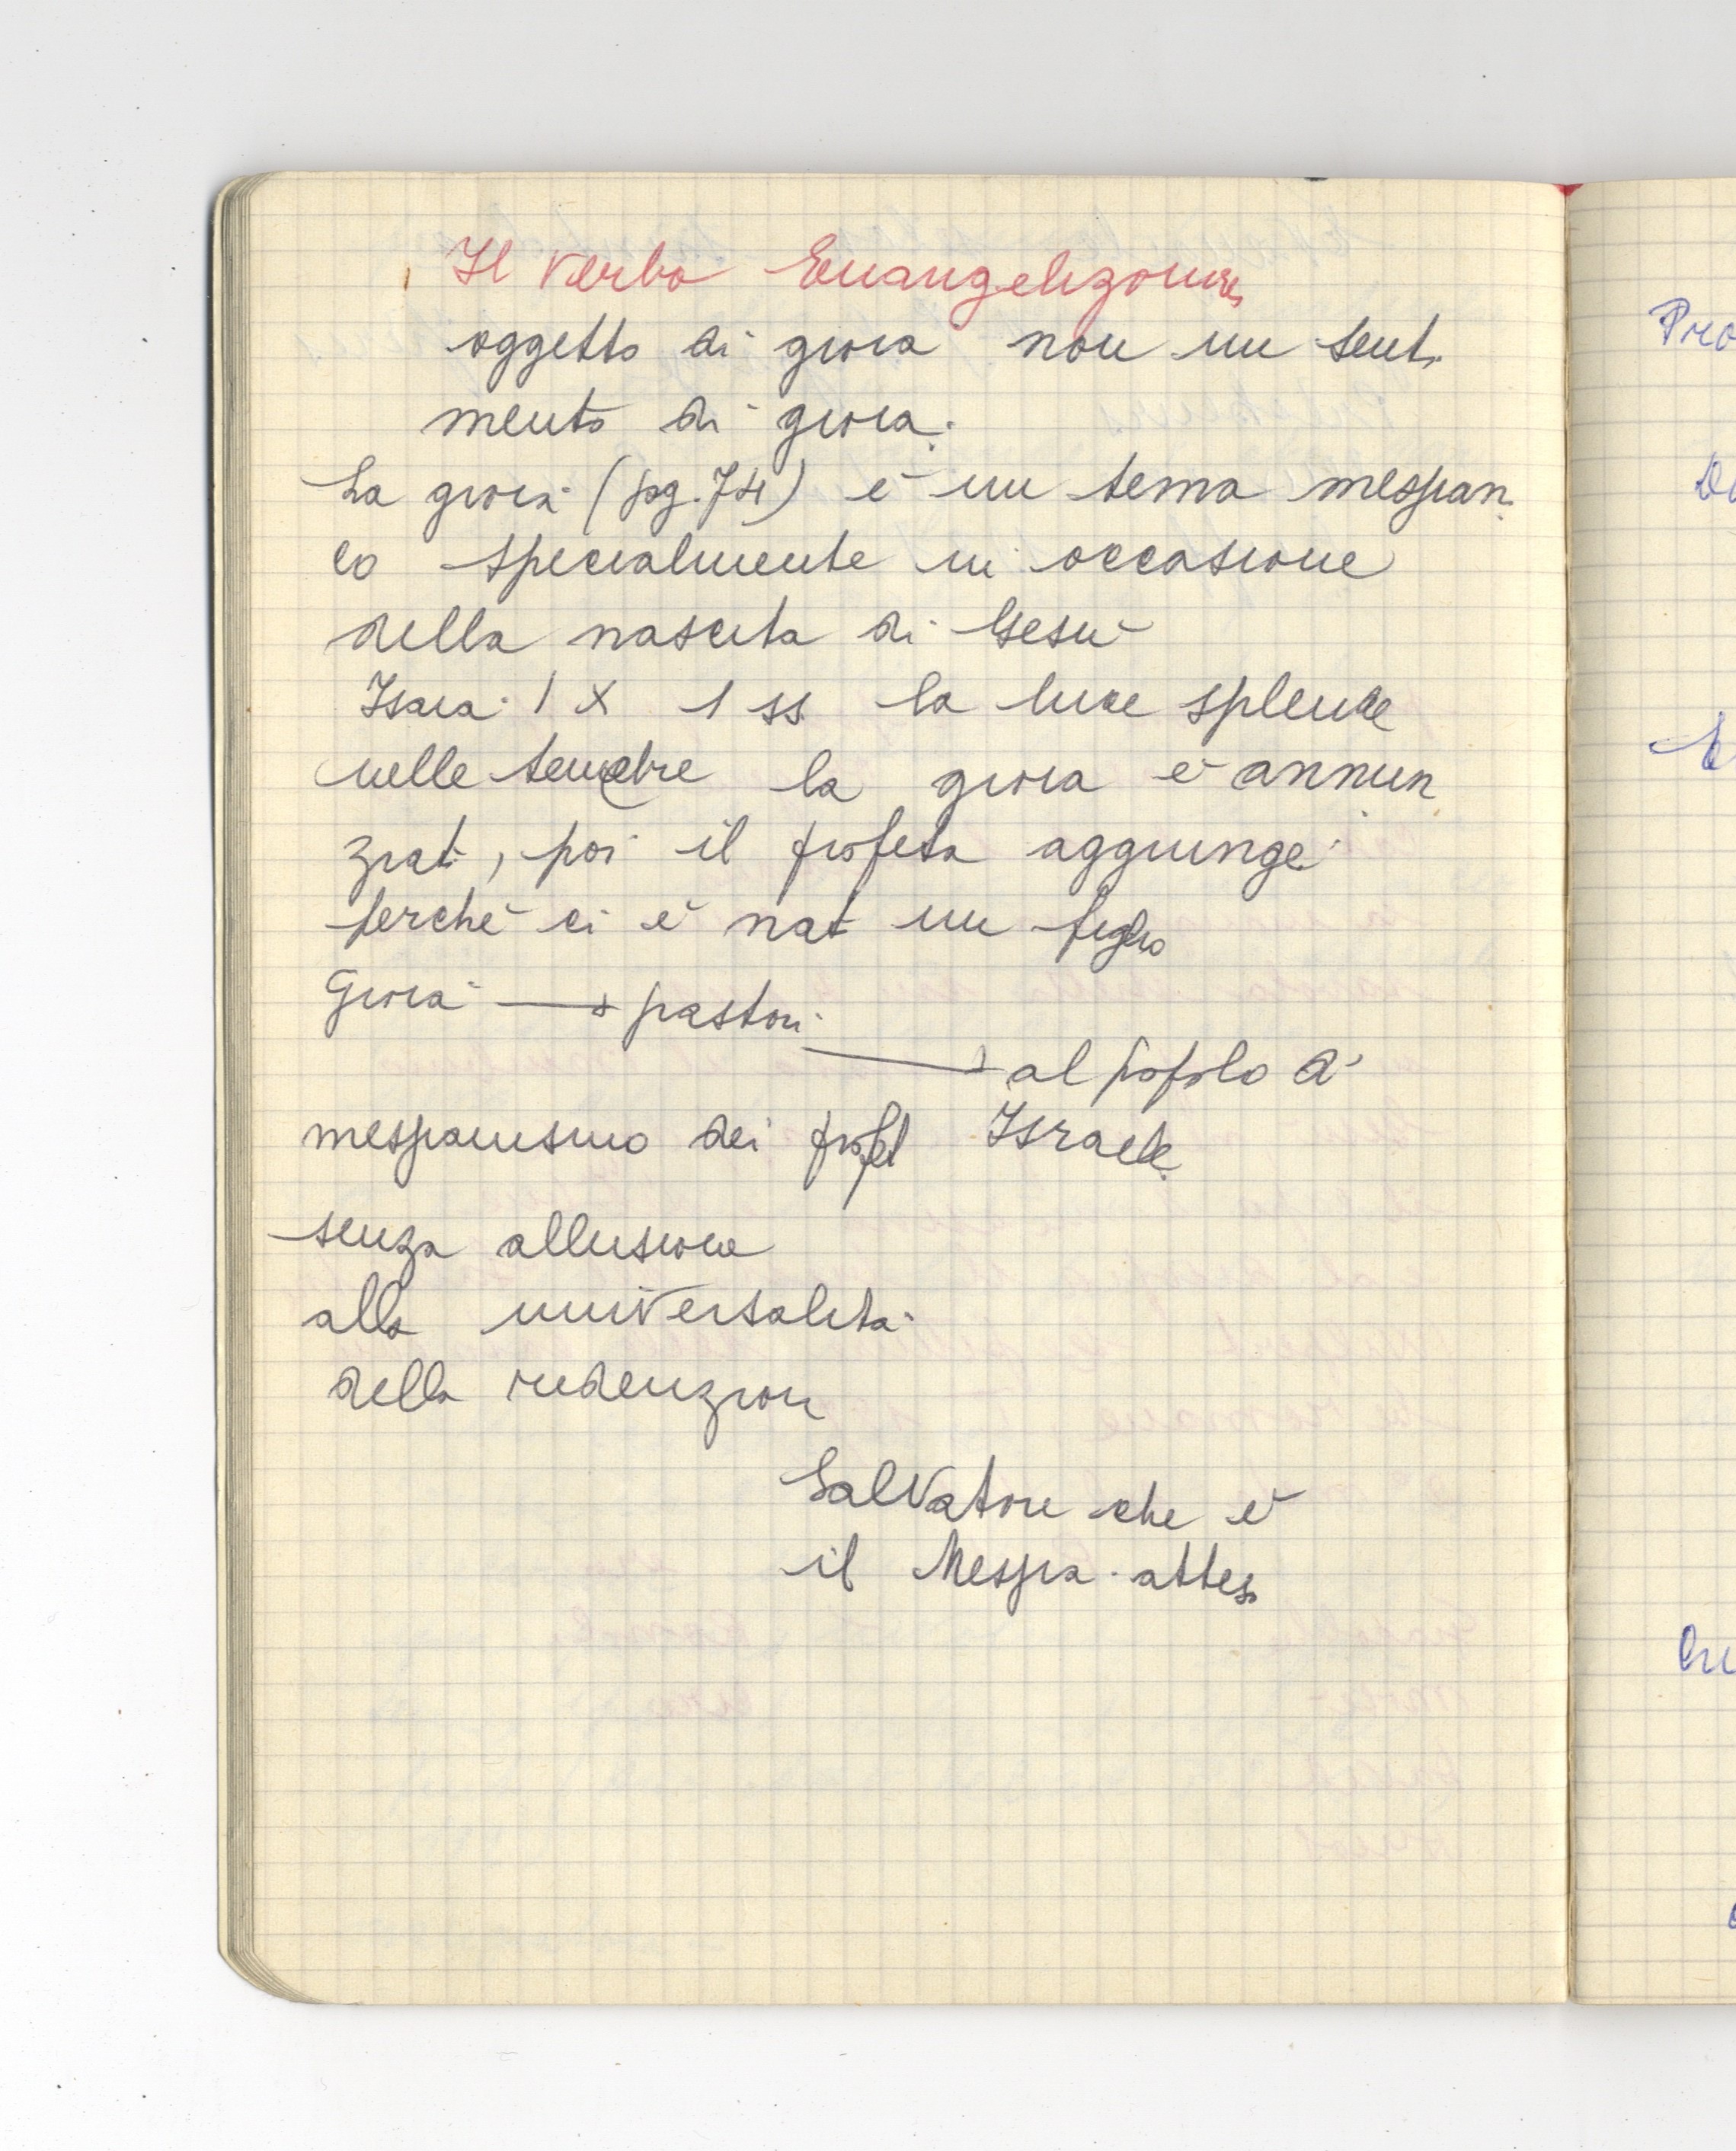 Il verbo Evangelizomes
oggetto di gioia non un senti
mento di gioia.
La gioia (pg. 74) è un tema messian
co specialmente in occasione
della nascita di Gesù
Isaia IX 1 ss la luce splende
nelle tenebre la gioia è annun
ziat, poi il profeta aggiunge
perchè ci è nat un figlio
Gioia → pastori
→ al popolo d'
messianismo dei profet Israele
senza allusione
alla universalità
della redenzion
Salvatore che è
il Messia atteso
Pro